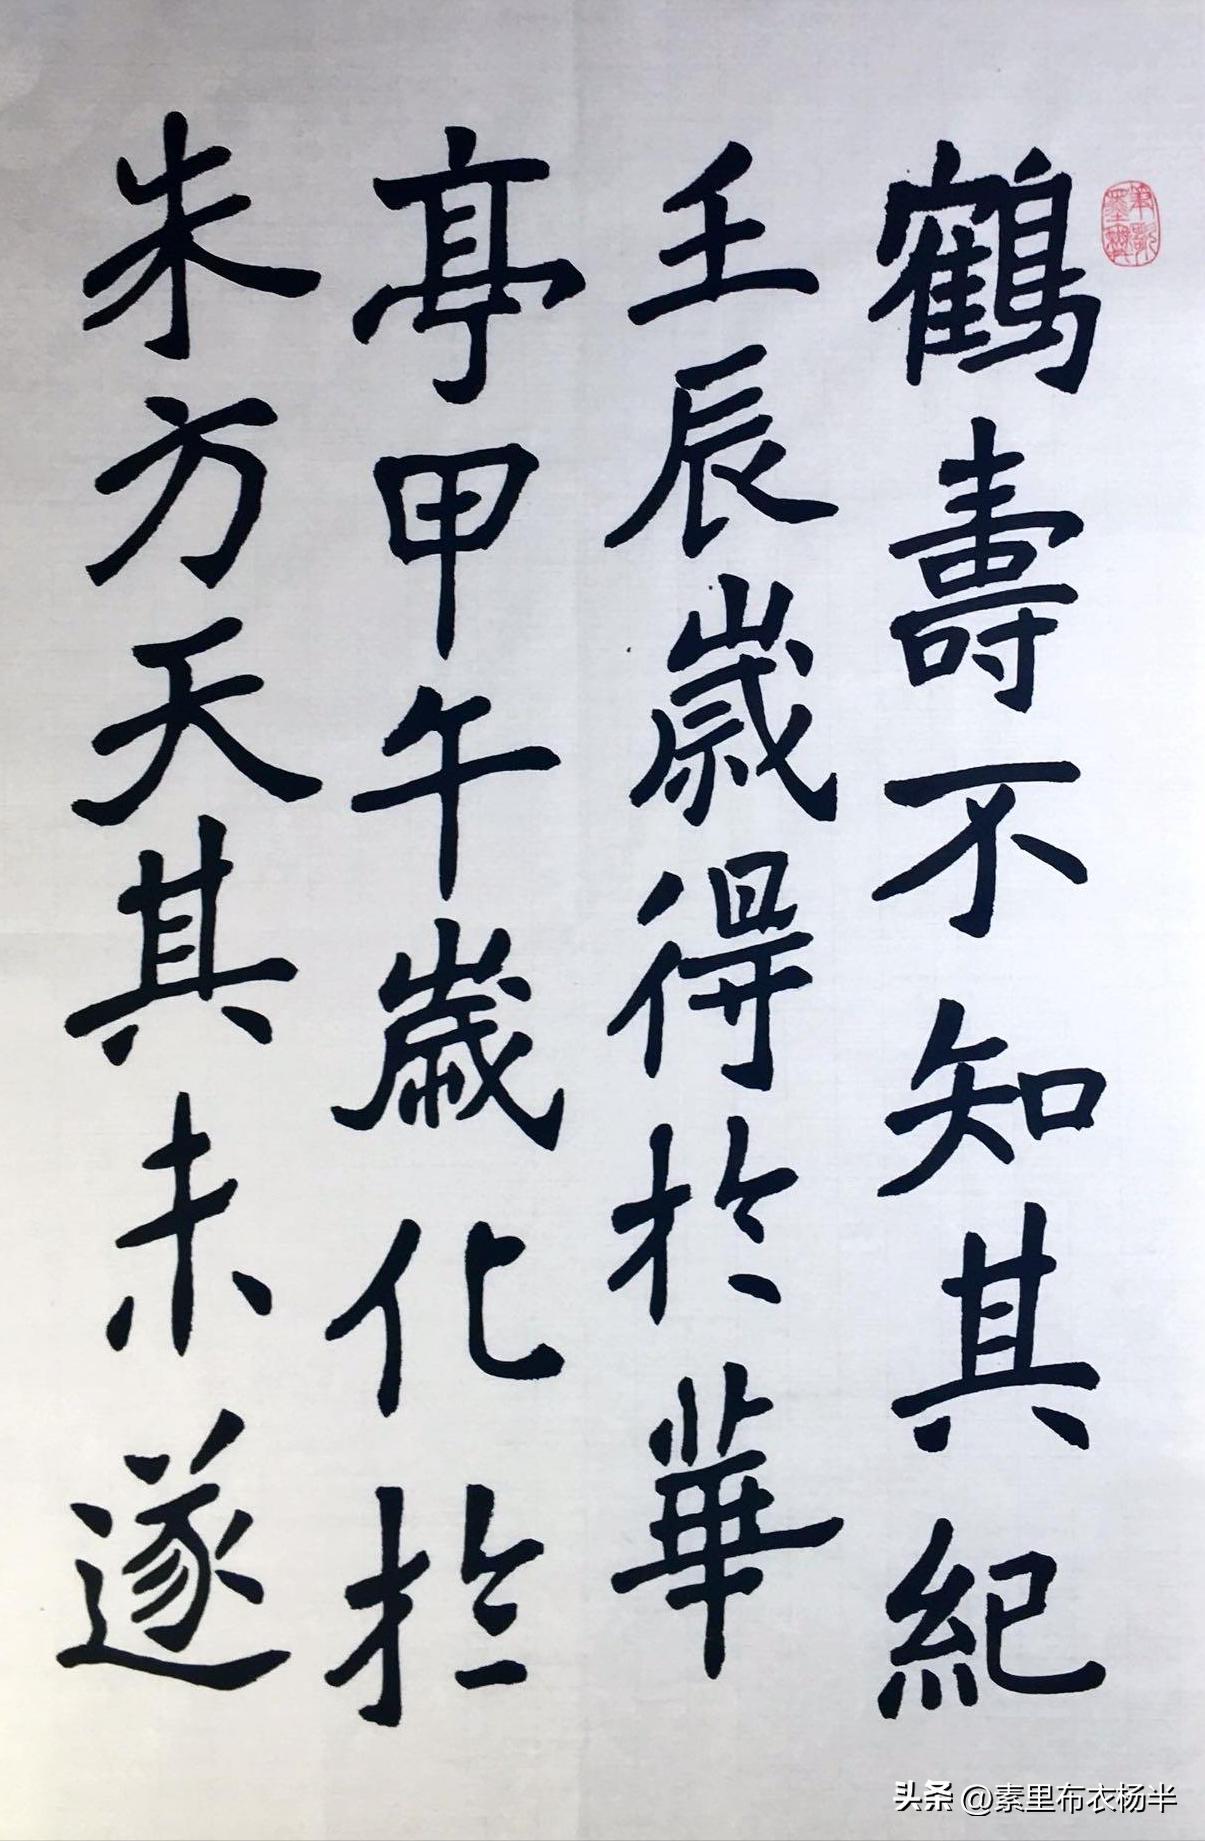 鶴壽不知其紀
壬辰歲得於華
亭甲午歲化於
朱方天其未遂
头条 @素里布衣杨半